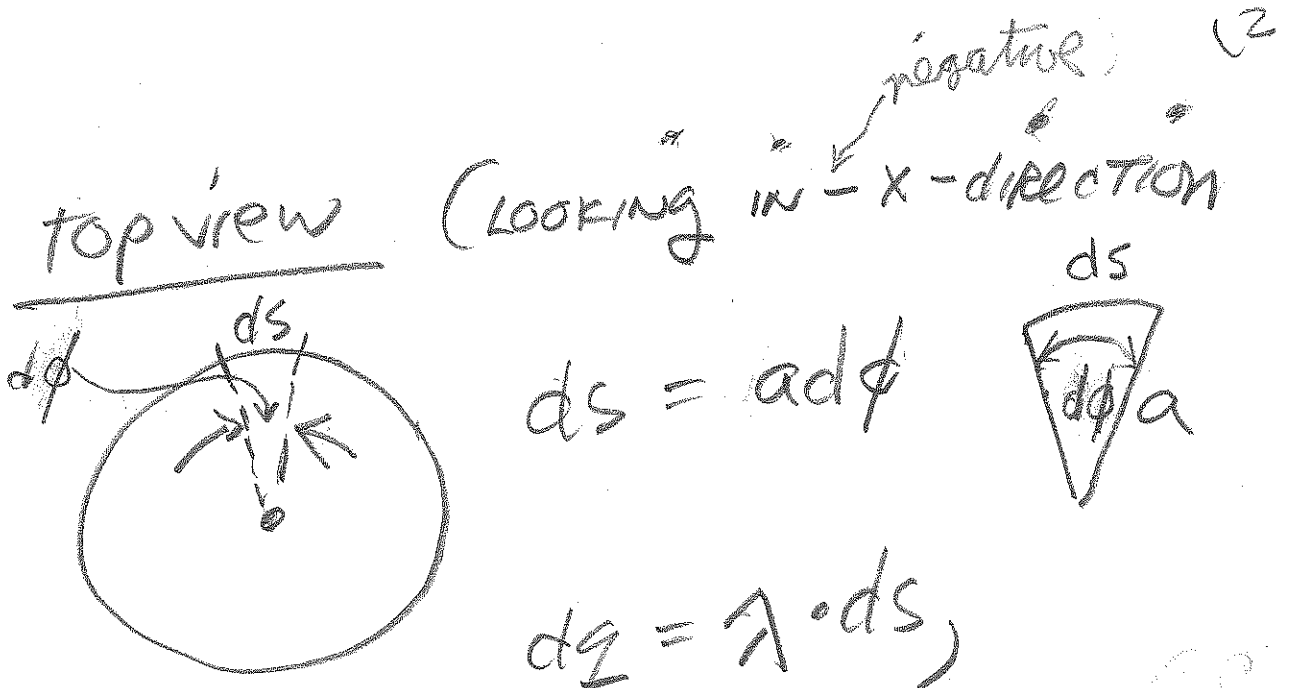 (2
negative
top view (LOOKING IN - X - direction
ds
ds
dφ
ds = adφ
dφ
a
dq = λ · ds,